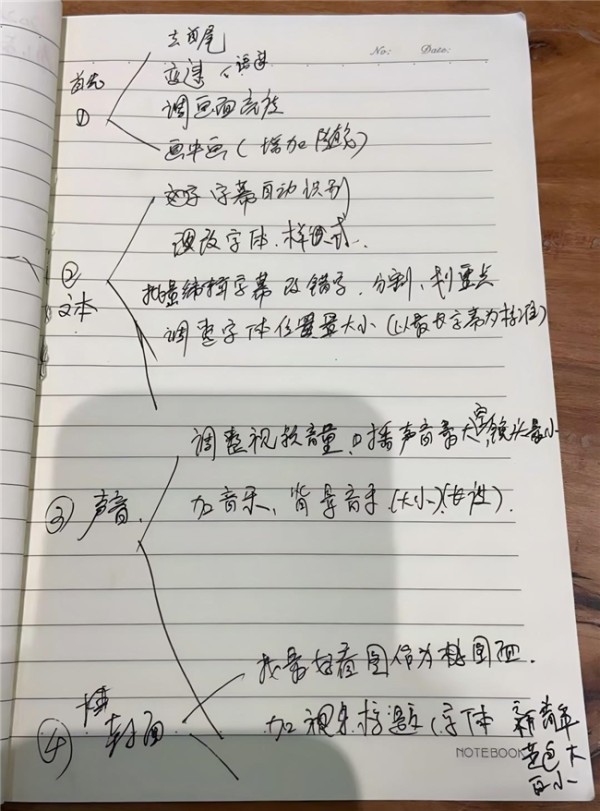 No: Date:
去首尾
首先 变速 语速
① 调画面亮度
画中画(增加
文字 字幕自动识别
② 调改字体.样式.
文本 批量编辑字幕 改错字.分割、划重点
调整字体位置 大小(以最长字幕为标准)
调整视频音量.口播声音最大,空镜头最小
③ 声音. 加音乐、背景音乐(大小)
找最好看图作为封面.
④ 封面 加视频标题(字体 新青年
NOTEBOOK 黄色大
白小